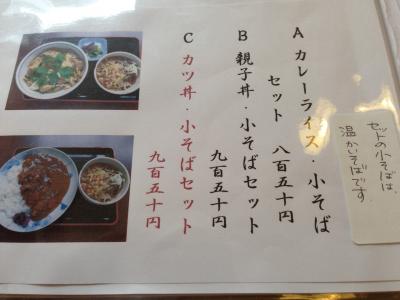 A カレーライス・小そば
セット 八百五十円
B 親子丼・小そばセット
九百五十円
C カツ丼・小そばセット
九百五十円
セットの小そばは、
温かいそばです。